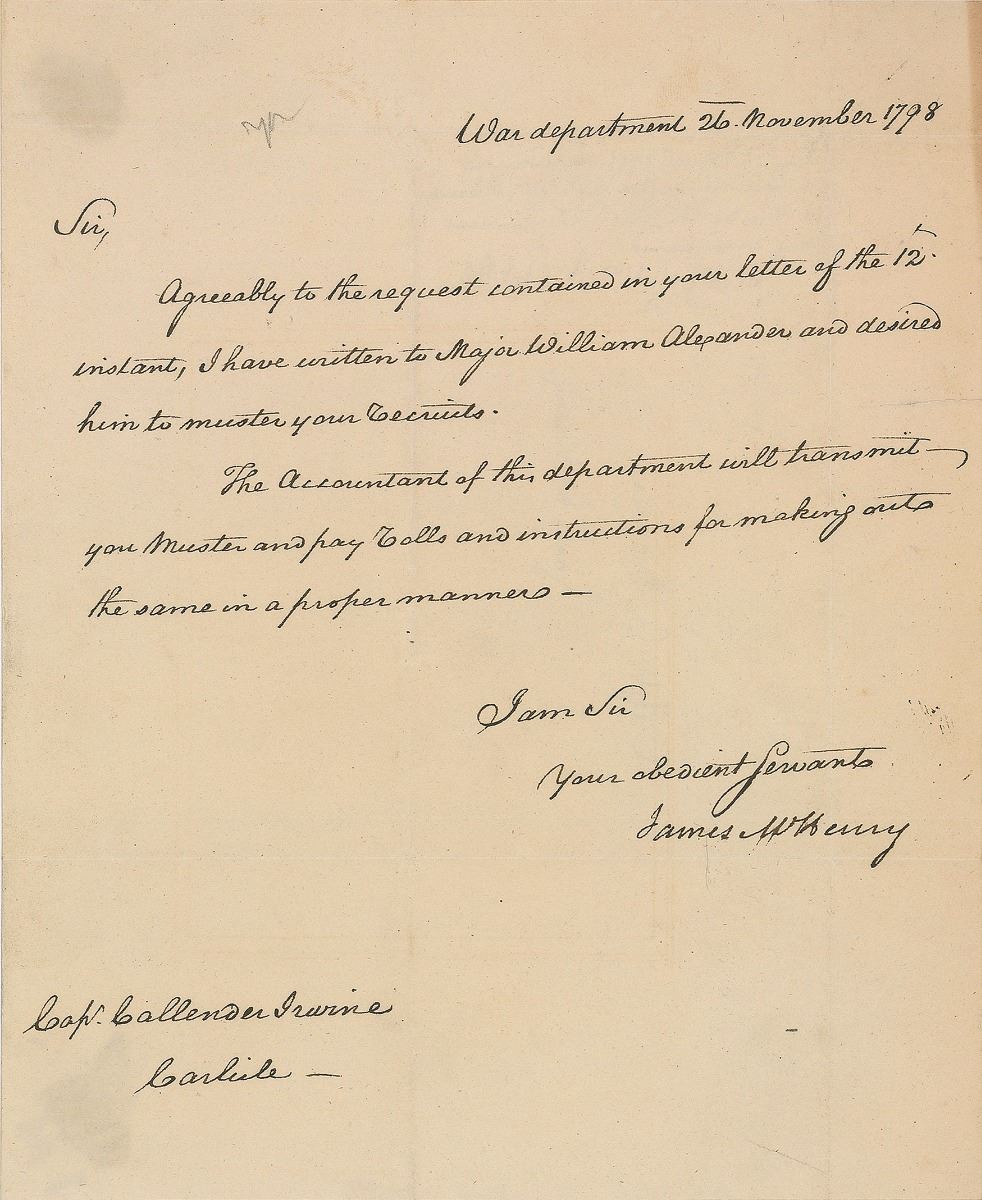 War department 26. November 1798
Sir,
Agreeably to the request contained in your letter of the 12.
instant, I have written to Major William Alexander and desired
him to muster your Recruits.
The Accountant of this department will transmit
you Muster and pay Rolls and instructions for making out
the same in a proper manner —
I am Sir
Your obedient Servant
James McHenry
Capt. Callender Irvine
Carlisle —